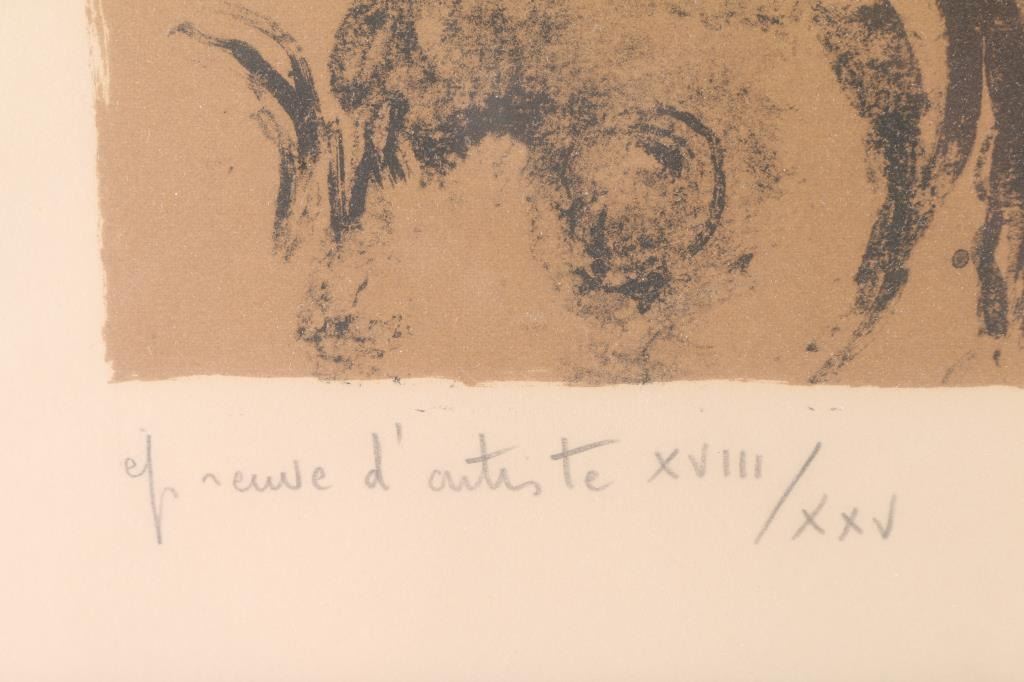 epreuve d'artiste XVIII/XXV